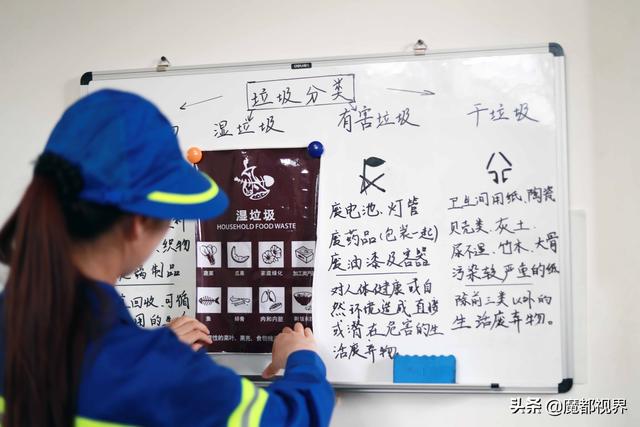 deli
垃圾分类
湿垃圾
有害垃圾
干垃圾
湿垃圾
HOUSEHOLD FOOD WASTE
蔬菜
瓜果
家庭绿化
加工肉
鱼
碎骨
肉和内脏
织物
锅制品
回收、可循
用的生
废电池、灯管
废药品(包装一起)
废油漆及容器
对人体健康或自
然环境造成直接
或潜在危害的生
活废弃物。
卫生间用纸、陶瓷
贝壳类、灰土、
尿不湿、竹木、大骨
污染较严重的纸
除前三类以外的
生活废弃物。
头条 @魔都视界